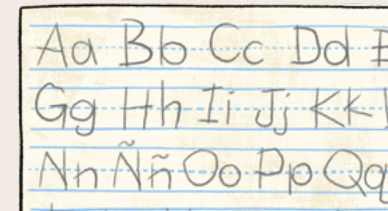 Aa Bb Cc Dd
Gg Hh Ii Jj Kk
Nn Ññ Oo Pp Qq